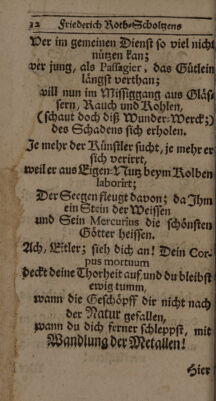 12 Friederich Roth-Scholtzens
Wer im gemeinen Dienst so viel nicht
nützen kan;
wer jung, als Passagier, das Gütlein
längst verthan;
will nun im Missiggang aus Gläs-
sern, Rauch und Kohlen,
(schaut doch diß Wunder-Werck;)
des Schadens sich erholen.
Je mehr der Künstler sucht, je mehr er
sich verirrt,
weil er aus Eigen-Nutz beym Kolben
laborirt;
Der Seegen fleugt davon; da Ihm
ein Stein der Weissen
und Sein Mercurius die schönsten
Götter heissen.
Ach, Eitler; sieh dich an! Dein Cor-
pus mortuum
deckt deine Thorheit auf und du bleibst
ewig tumm,
wann die Geschöpff dir nicht nach
der Natur gefallen,
wann du dich ferner schleppst, mit
Wandlung der Metallen!
Hier